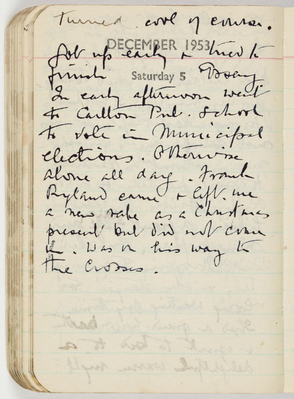 turned cool of course.
DECEMBER 1953
Got up early & tried to
finish Essay
Saturday 5
In early afternoon went
to Carlton Pub. School
to vote in Municipal
elections. Otherwise
alone all day. Frank
Ryland came & left me
a new rake as a Christmas
present but did not come
in. Was on his way to
the Crosses.